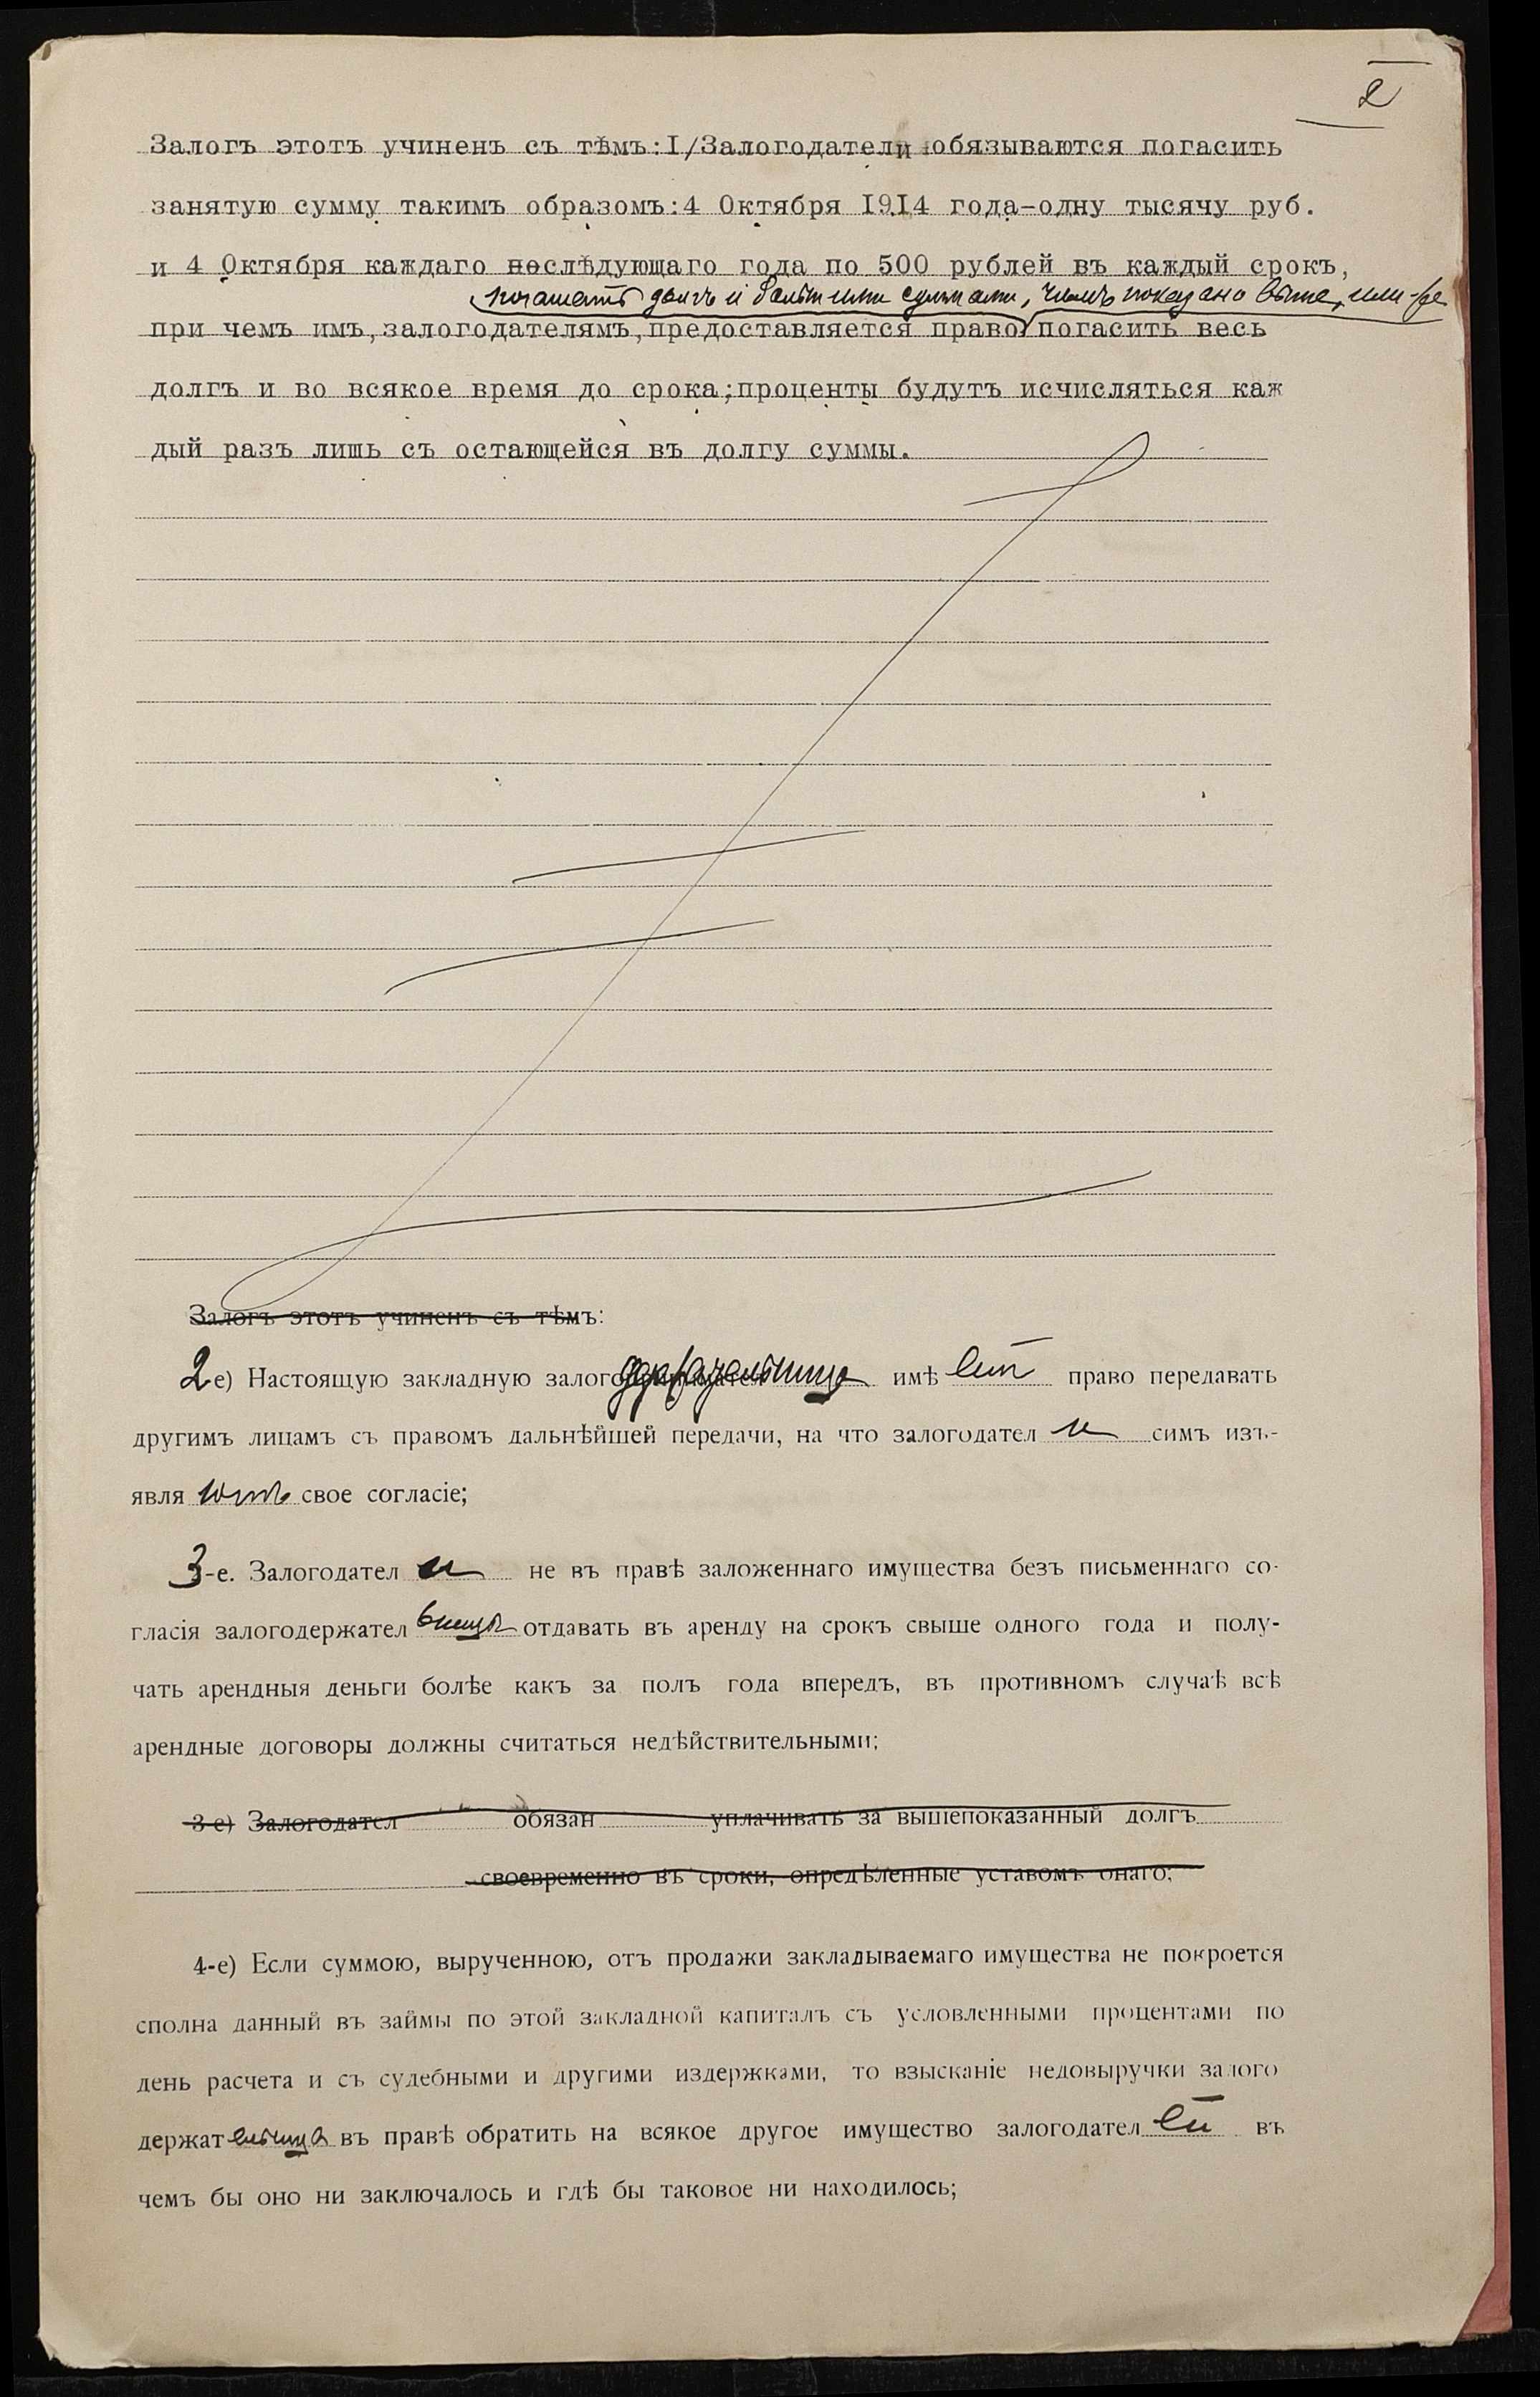 2
Залогъ этотъ учиненъ съ тѣмъ:I/Залогодатели обязываются погасить
занятую сумму такимъ образомъ:4 Октября I9I4 года-одну тысячу руб.
и 4 Октября каждаго послѣдующаго года по 500 рублей въ каждый срокъ,
погашать долгъ и большими суммами, чѣмъ показано выше, или-же
при чемъ имъ,залогодателямъ,предоставляется право погасить весь
долгъ и во всякое время до срока;проценты будутъ исчисляться каж
дый разъ лишь съ остающейся въ долгу суммы.
Залогъ этотъ учиненъ съ тѣмъ:
2е) Настоящую закладную залогодержательница имѣетъ право передавать
другимъ лицамъ съ правомъ дальнѣйшей передачи, на что залогодатели симъ изъ-
являютъ свое согласіе;
3-е. Залогодатели не въ правѣ заложеннаго имущества безъ письменнаго со-
гласія залогодержательницы отдавать въ аренду на срокъ свыше одного года и полу-
чать арендныя деньги болѣе какъ за полъ года впередъ, въ противномъ случаѣ всѣ
арендные договоры должны считаться недѣйствительными;
3-е) Залогодател обязан уплачивать за вышепоказанный долгъ
своевременно въ сроки, опредѣленные уставомъ онаго;
4-е) Если суммою, вырученною, отъ продажи закладываемаго имущества не покроется
сполна данный въ займы по этой закладной капиталъ съ условленными процентами по
день расчета и съ судебными и другими издержками, то взысканіе недовыручки залого
держательница въ правѣ обратить на всякое другое имущество залогодателей въ
чемъ бы оно ни заключалось и гдѣ бы таковое ни находилось;